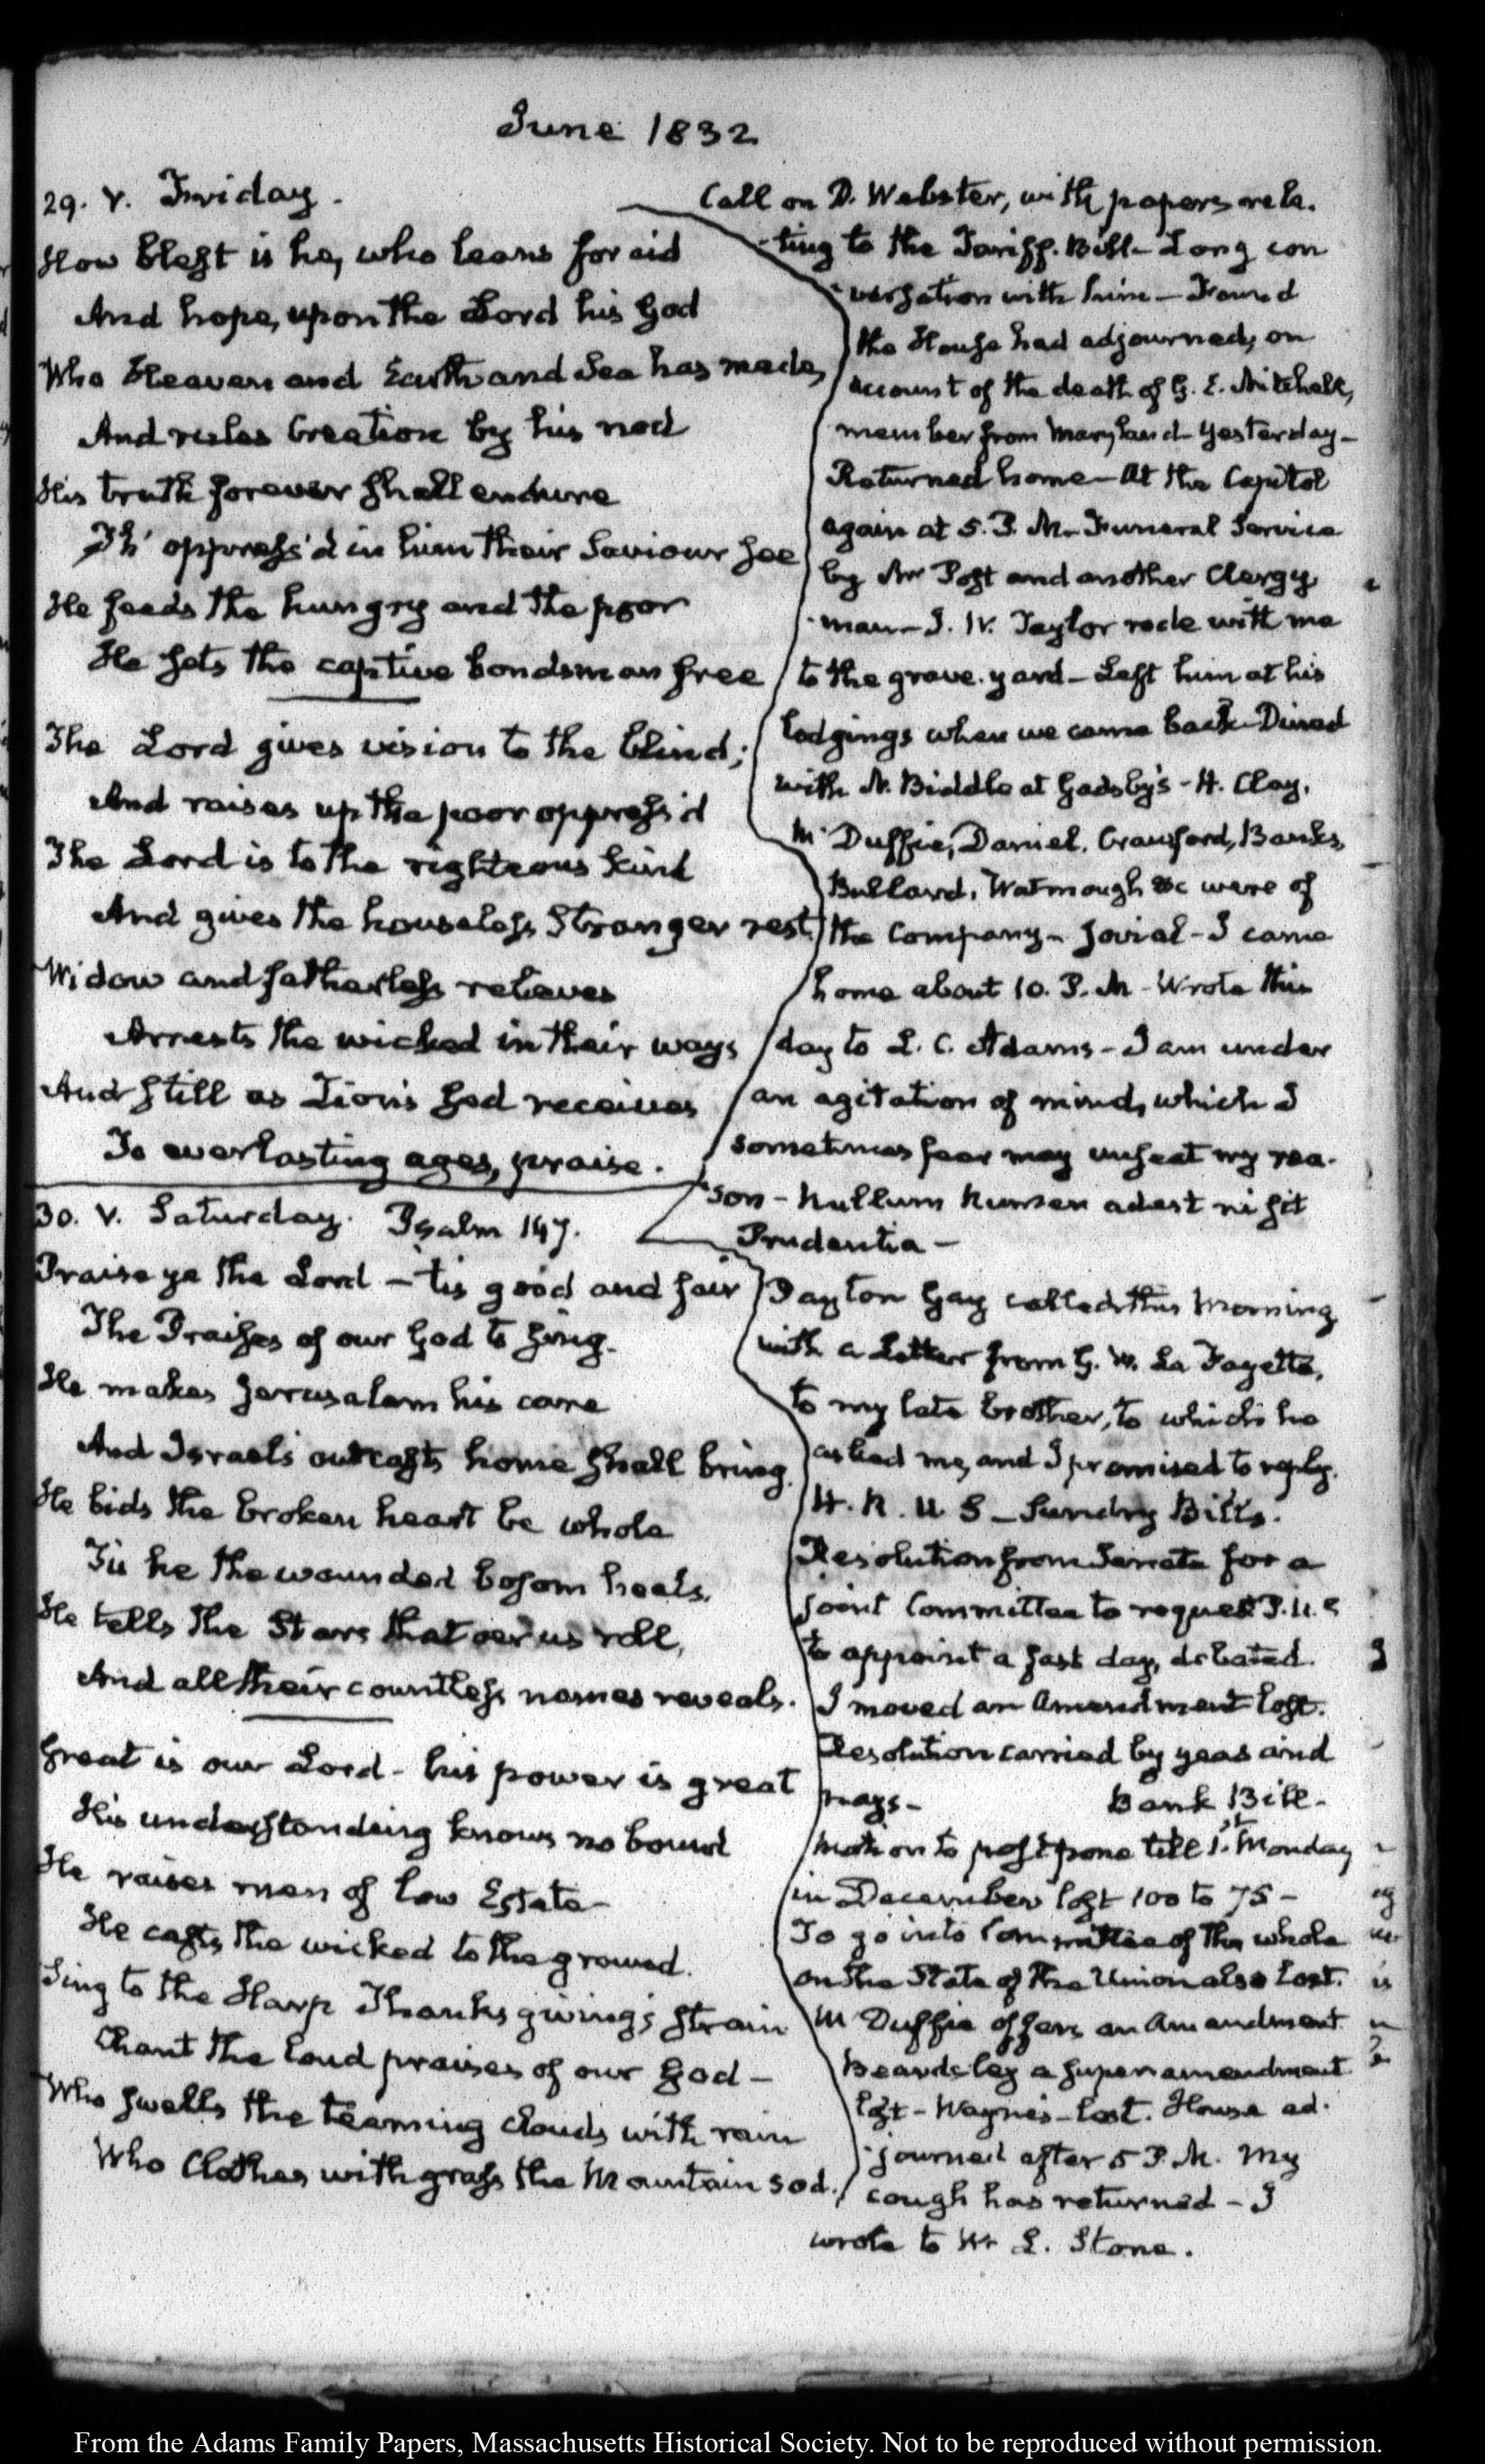 June 1832
29. V. Friday.
How blest is he, who leans for aid
And hope, upon the Lord his God
Who Heaven and Earth and Sea has made,
And rules Creation by his nod
His truth forever shall endure
Th' oppress'd in him their Saviour see
He feeds the hungry and the poor
He sets the captive bondsman free
The Lord gives vision to the blind;
And raises up the poor oppress'd
The Lord is to the righteous kind
And gives the houseless Stranger rest.
Widow and fatherless relieves
Arrests the wicked in their ways
And still as Zion's God receives
To everlasting ages, praise.
Call on D. Webster, with papers rela-
-ting to the Tariff. Bill - Long con
-versation with him - Found
the House had adjourned, on
account of the death of G. E. Mitchell,
member from Maryland yesterday -
Returned home - At the Capitol
again at 5. P. M - Funeral Service
by Mr Post and another Clergy
-man - J. W. Taylor rode with me
to the grave. yard - Left him at his
lodgings when we came back - Dined
with N. Biddle at Gadsby's - H. Clay,
Mc Duffie, Daniel, Crawford, Banks,
Bullard, Watmough &c were of
the Company - Jovial - I came
home about 10. P. M - Wrote this
day to L. C. Adams - I am under
an agitation of mind, which I
sometimes fear may unseat my rea-
-son - Nullum Numen adest ni sit
Prudentia -
30. V. Saturday. Psalm 147.
Praise ye the Lord - 'tis good and fair
The Praises of our God to sing.
He makes Jerusalem his care
And Israel's outcasts home shall bring.
He bids the broken heart be whole
Tis he the wounded bosom heals.
He tells the Stars that o'er us roll,
And all their countless names reveals.
Great is our Lord - his power is great
His understanding knows no bound
He raises men of low Estate -
He casts the wicked to the ground.
Sing to the Harp Thanksgiving's strain
Chant the loud praises of our God -
Who swells the teaming clouds with rain
Who Clothes with grass the Mountain sod.
Payton Gay called this Morning
with a Letter from G. W. La Fayette,
to my late brother, to which he
asked me, and I promised to reply.
H. R. U S - Sundry Bills.
Resolution from Senate for a
joint Committee to request P. U. S
to appoint a fast day, debated.
I moved an Amendment lost.
Resolution carried by yeas and
nays - Bank Bill -
Motion to postpone till 1st. Monday
in December lost 100 to 75 -
To go into Committee of the whole
on the State of the Union also lost.
Mc Duffie offers an Amendment
Beardsley a superamendment
lost - Wayne's - lost. House ad-
-journed after 5 P. M. My
cough has returned - I
wrote to W. L. Stone.
From the Adams Family Papers, Massachusetts Historical Society. Not to be reproduced without permission.